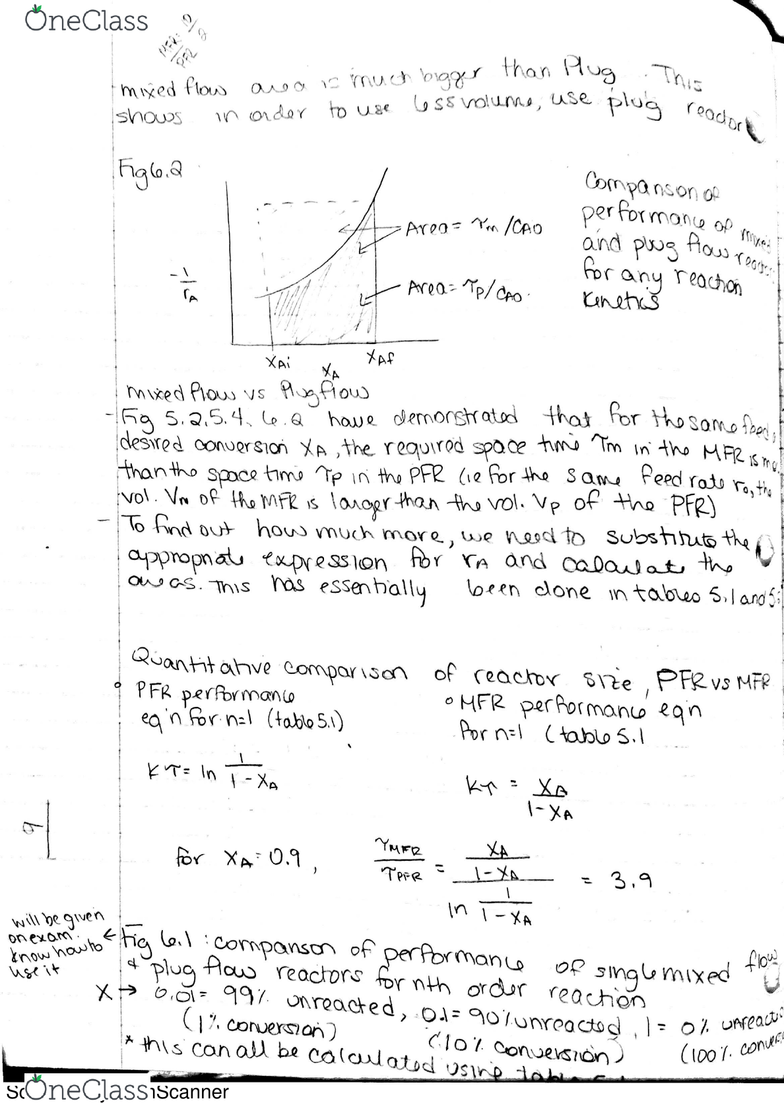 OneClass
mixed flow area is much bigger than Plug. This
shows in order to use less volume, use plug reactor
Fig 6.2
Comparison of
performance of mixed
and plug flow
for any reaction
kinetics
Area = τm/CA0
Area = τp/CA0
-1/rA
XAi XA XAf
mixed flow vs Plug flow
- Fig 5.2, 5.4, 6.2 have demonstrated that for the same feed
desired conversion XA, the required space time τm in the MFR is
than the space time τp in the PFR (ie for the same feed rate, the
vol. Vm of the MFR is larger than the vol. Vp of the PFR)
- To find out how much more, we need to substitute the
appropriate expression for rA and calculate the
areas. This has essentially been done in tables 5.1 and 5.
Quantitative comparison of reactor size, PFR vs MFR
° PFR performance
eq'n for n=1 (table 5.1)
° MFR performance eq'n
for n=1 (table 5.1
Kτ = ln 1/(1-XA)
Kτ = XA/(1-XA)
for XA = 0.9, τMFR/τPFR = (XA/(1-XA))/(ln 1/(1-XA)) = 3.9
will be given
on exam.
know how to
use it
← Fig 6.1: comparison of performance of single mixed flow
+ plug flow reactors for nth order reaction
X → 0.01 = 99% unreacted, 0.1 = 90% unreacted, 1 = 0%
(1% conversion) (10% conversion) (100%
* this can all be calculated using
OneClass
Scanner